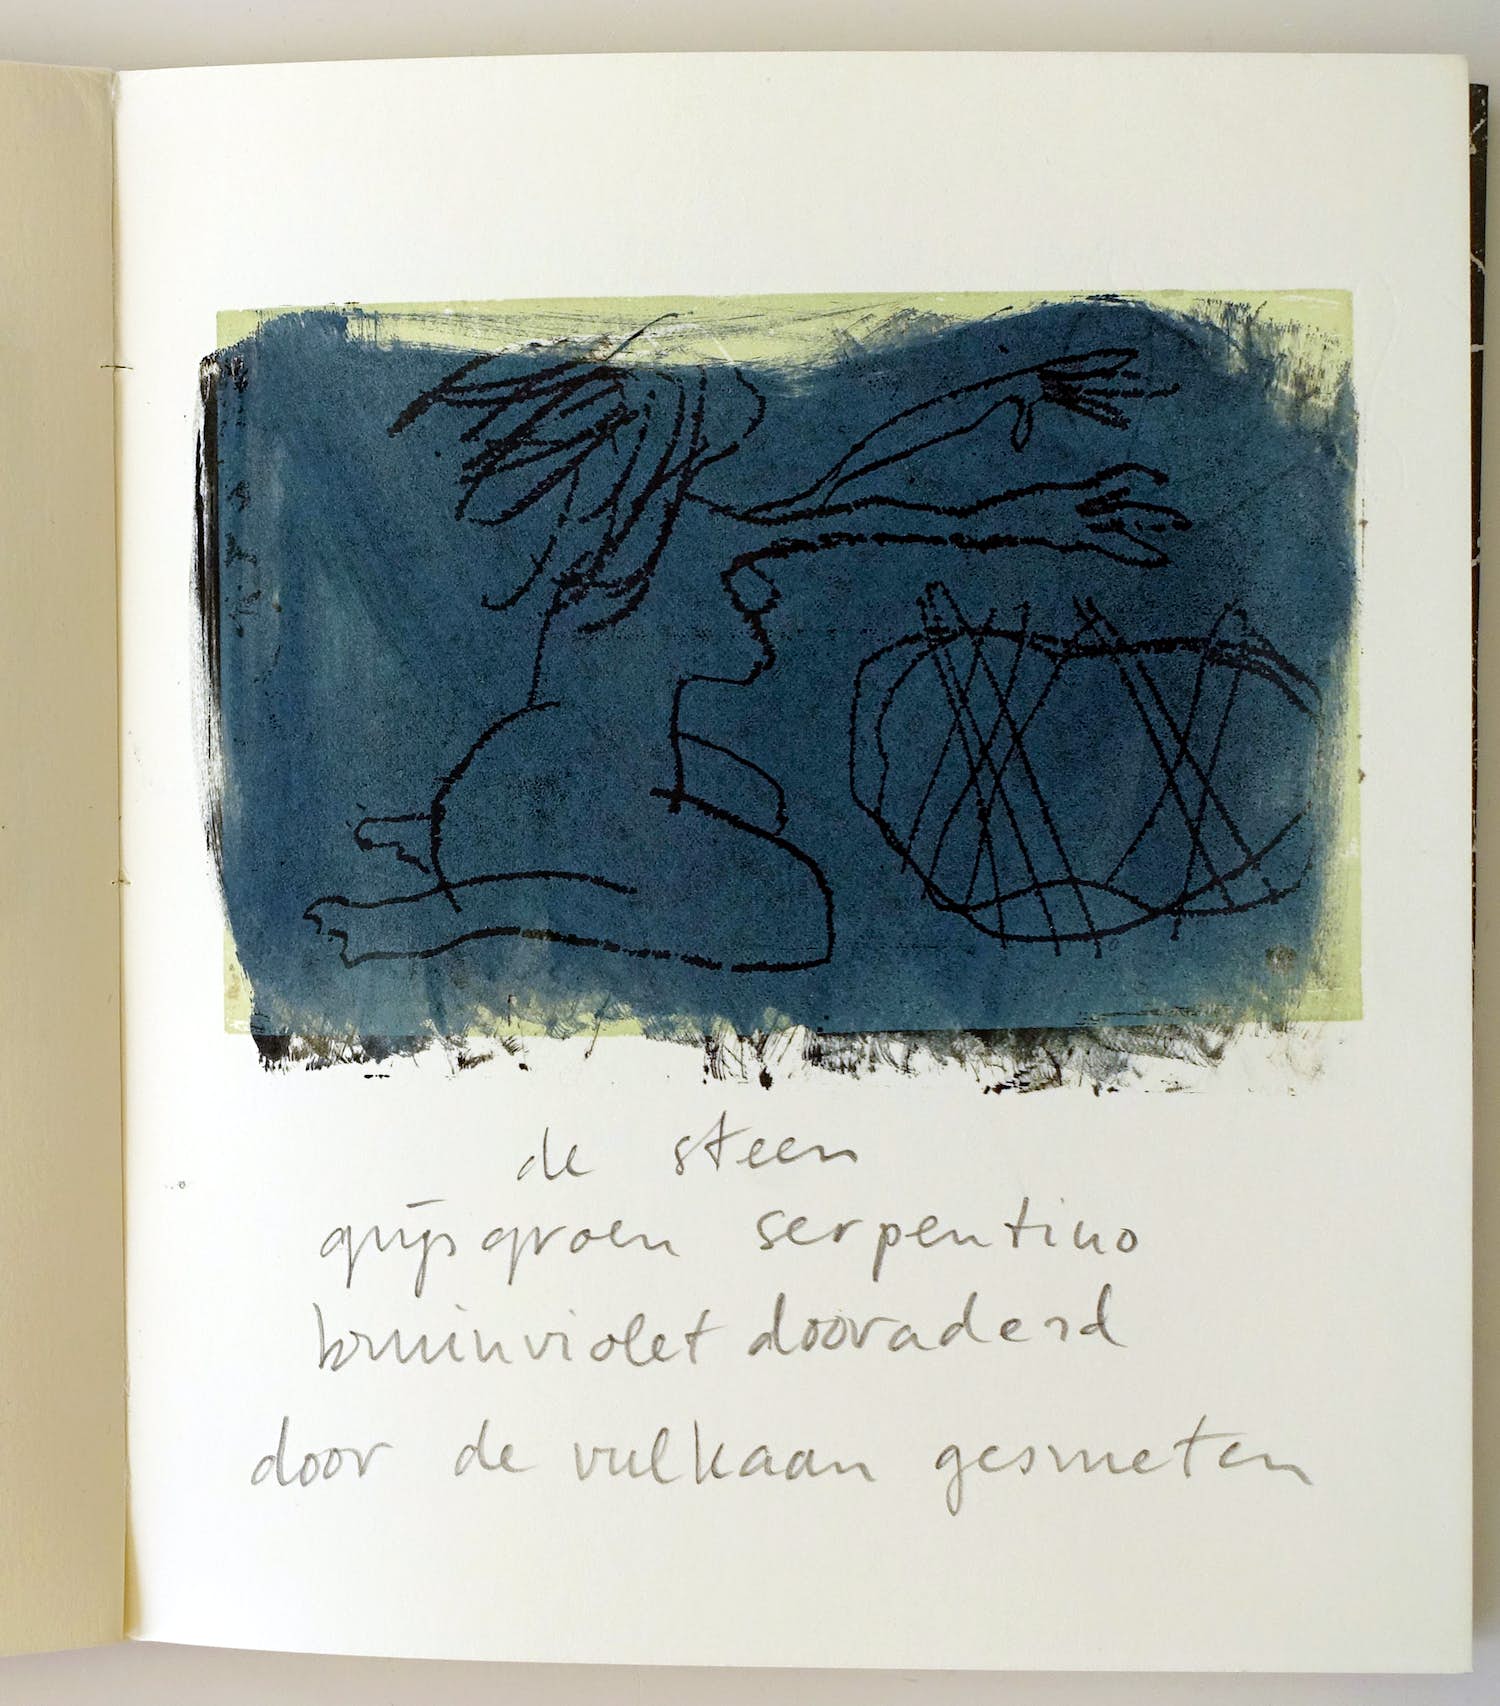 de steen
grijsgroen serpentino
bruinviolet dooraderd
door de vulkaan gesmeten